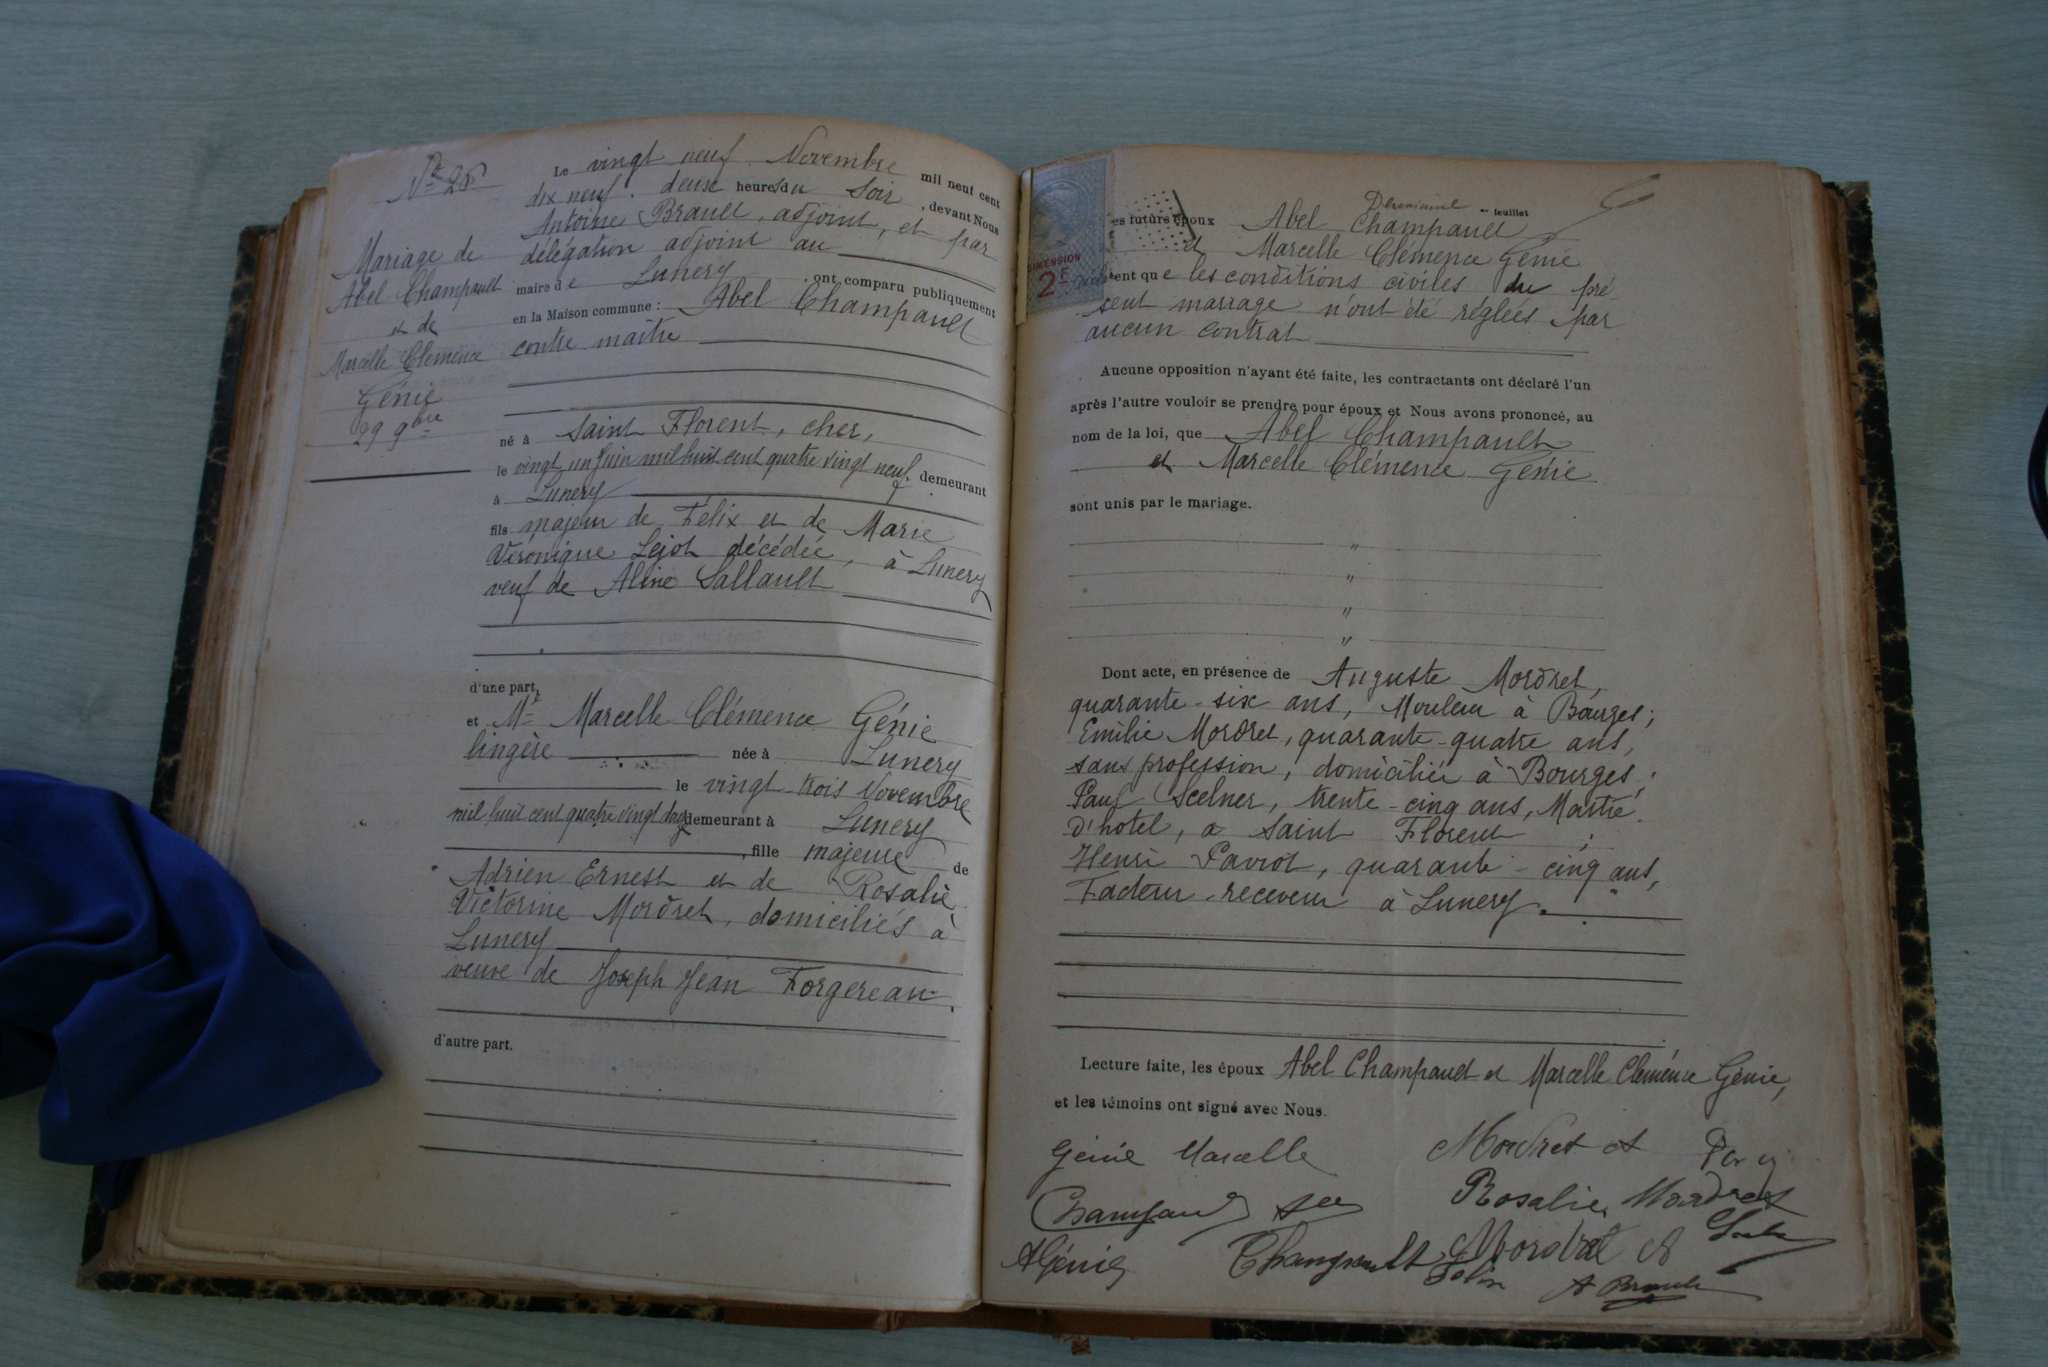 Nº 28
Mariage de
Abel Champault
et de
Marcelle Clémence
Génie
29 9bre
Le vingt neuf Novembre mil neuf cent
dix neuf. deux heures du soir, devant Nous
Antoine Brault, adjoint, et par
délégation adjoint au
maire de Lunery, ont comparu publiquement
en la Maison commune : Abel Champault
contre maître
né à Saint Florent, cher,
le vingt un Juin mil huit cent quatre vingt neuf, demeurant
à Lunery
fils majeur de Félix et de Marie
Véronique Lejot décédée, à Lunery
veuf de Aline Sallault
d'une part,
et Me Marcelle Clémence Génie
lingère née à Lunery
le vingt trois Novembre
mil huit cent quatre vingt demeurant à Lunery
, fille majeure de
Adrien Ernest et de Rosalie
Victorine Mordret, domiciliés à
Lunery
veuve de Joseph Jean Forgereau.
d'autre part.
feuillet
DIMENSION
2F
es futurs époux Abel Champault
et Marcelle Clémence Génie
sent que les conditions civiles du pré
sent mariage n'ont été réglées par
aucun contrat
Aucune opposition n'ayant été faite, les contractants ont déclaré l'un
après l'autre vouloir se prendre pour époux et Nous avons prononcé, au
nom de la loi, que Abel Champault
et Marcelle Clémence Génie
sont unis par le mariage.
"
"
"
"
Dont acte, en présence de Auguste Mordret,
quarante-six ans, Mouleur à Bourges;
Emilie Mordret, quarante-quatre ans,
sans profession, domiciliée à Bourges;
Paul trente-cinq ans, Maître
d'hotel, à Saint Florent ;
Henri Paviot, quarante-cinq ans,
Facteur-receveur à Lunery.
Lecture faite, les époux Abel Champault et Marcelle Clémence Génie,
et les témoins ont signé avec Nous.
Génie Marcelle
Mordret A
Rosalie Mordret
Champault
A Génie
Champault Félix
Mordret A
A Brault